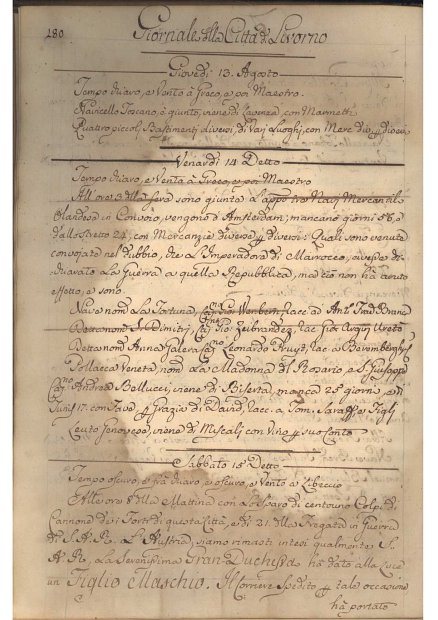 180
Giornale della Città di Livorno
Giovedì 13. Agosto
Tempo chiaro, e Vento à Greco, e poi Maestro
Navicello Toscano è giunto, viene di Lavenza con Marmetti
Quattro piccoli Bastimenti diversi, di Varj Luoghi, con Merc
Venardi 14 Detto
Tempo chiaro, e Vento à Greco, e poi Maestro
All'ore 3 della sera sono giunte l'appo tre Navi Mercantili
Olandese in Convoio, vengono d'Amsterdam, mancano giorni 56, e
dallo Stretto 24, con Mercanzie diverse p diversi: Quali sono venute
convojate nel dubbio, che L'Imperadore di Marrocco, avesse di
chiarato La Guerra a quella Repubblica, ma ciò non hà avuto
effetto, e sono
Nave nom La Fortuna, Gio acc a Ant
Detta nom S. Dimitri, Gio Zeibrandez, acc
Detta nom Anna Galera, Leonardo Pruyst, acc a
Pollacca Veneta, nom La Madonna di Rosario, e S. Giuseppe
Andrea Bellucci, viene di Biserta, manca 25 giorni, e di
Tunis 17. con Fava, p Grazia di David, acc. a Tom. e Figlj
Leuto Genovese, viene di con Vino p suo Conto
Sabbato 15 Detto
Tempo oscuro, e frà chiaro, e oscuro, e Vento a Libeccio
Alle ore 8 della Mattina con Lo sparo di centouno Colpi di
Cannone dei Forti di questa Città, e di 21. della Fregata in Guerra
di S. A. R. L'Austria, siamo rimasti intesi qualmente S.
A. R. La Serenissima Gran Duchessa hà dato alla Luce
un Figlio Maschio. Il Corriere Spedito p tale occasione
hà portato